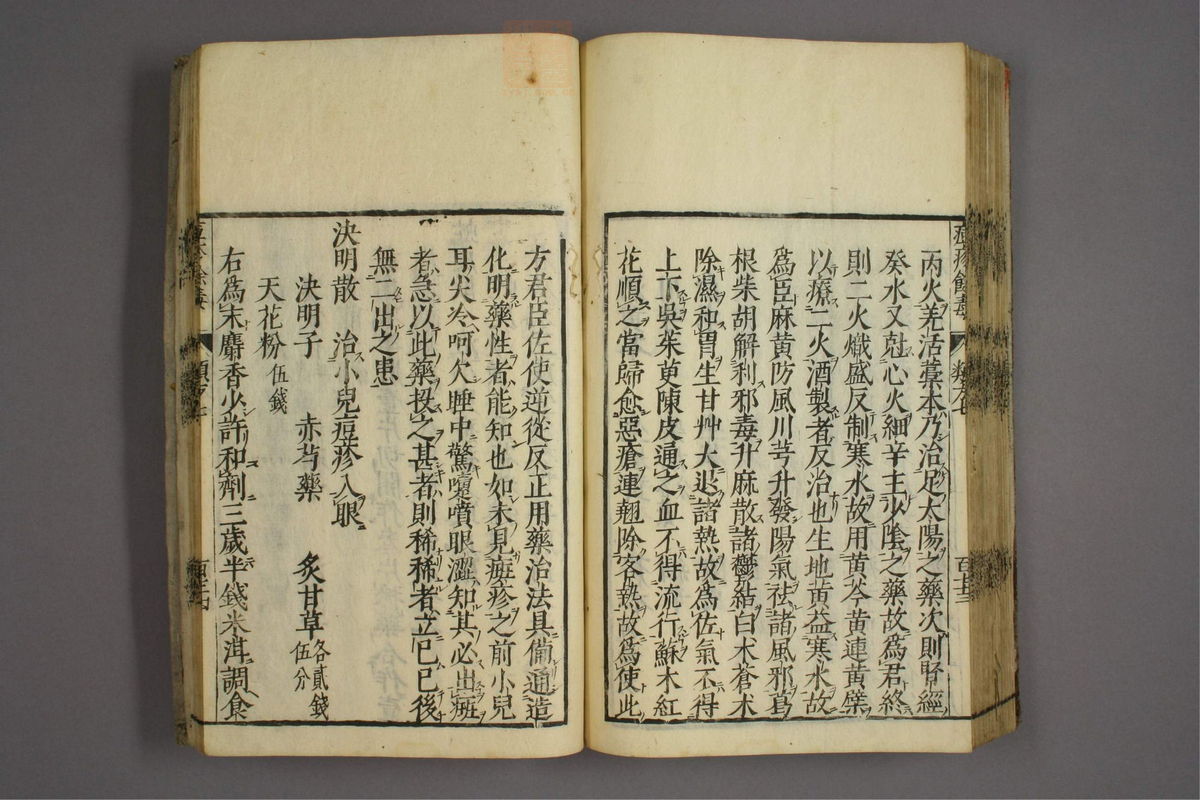 丙火羌活藁本乃治足太陽之藥次則腎經
癸水又尅心火細辛主少陰之藥故爲君終
則二火熾盛反制寒水故用黄芩黄連黄檗
以療二火酒製者反治也生地黄益寒水故
爲臣麻黄防風川芎升發陽氣祛諸風邪葛
根柴胡解利邪毒升麻散諸鬱結白朮蒼朮
除濕和胃生甘艸大退諸熱故爲佐氣不得
上下吳茱萸陳皮通之血不得流行蘇木紅
花順之當歸愈惡瘡連翹除客熱故爲使此
方君臣佐使逆從反正用藥治法具備通造
化明藥性者能知也如未見癍疹之前小兒
耳尖冷呵欠睡中驚嚏噴眼澀知其必出癍
者急以此藥投之甚者則稀稀者立已已後
無二出之患
決明散 治小兒痘疹入眼
決明子 赤芍藥 炙甘草各貳錢伍分
天花粉伍錢
右爲末麝香少許和劑三歲半錢米泔調食